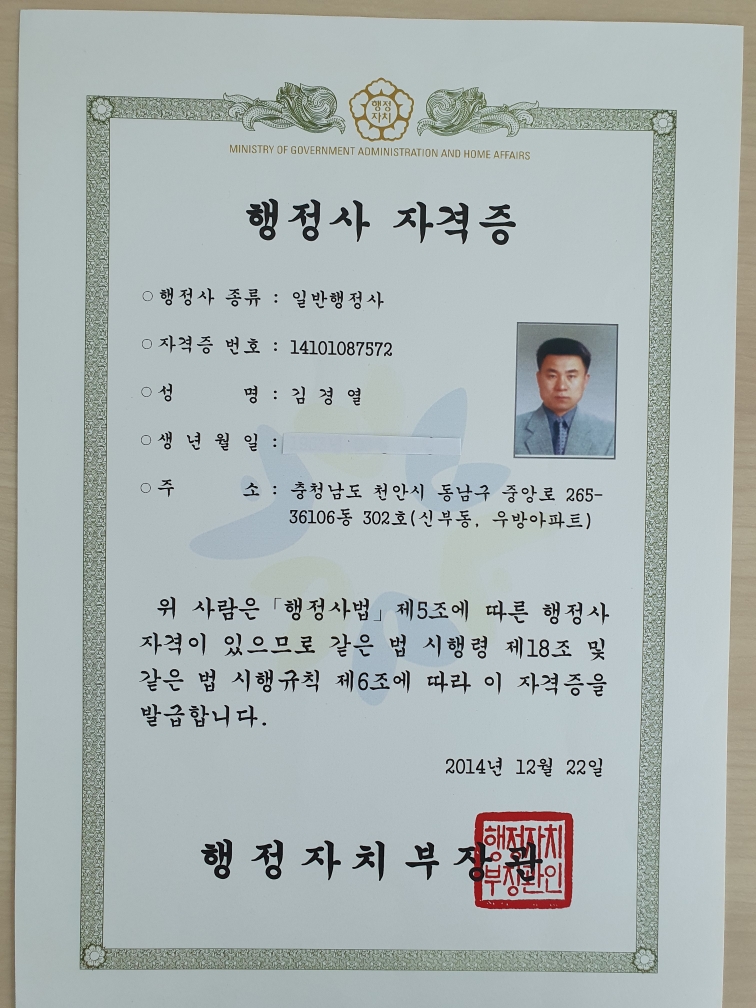 행정
자치
MINISTRY OF GOVERNMENT ADMINISTRATION AND HOME AFFAIRS
행정사 자격증
○ 행정사 종류 : 일반행정사
○ 자격증 번호 : 14101087572
○ 성 명 : 김 경 열
○ 생 년 월 일 :
○ 주 소 : 충청남도 천안시 동남구 중앙로 265-
36106동 302호(신부동, 우방아파트)
위 사람은 「행정사법」 제5조에 따른 행정사
자격이 있으므로 같은 법 시행령 제18조 및
같은 법 시행규칙 제6조에 따라 이 자격증을
발급합니다.
2014년 12월 22일
행 정 자 치 부 장 관
행정자치
부장관인